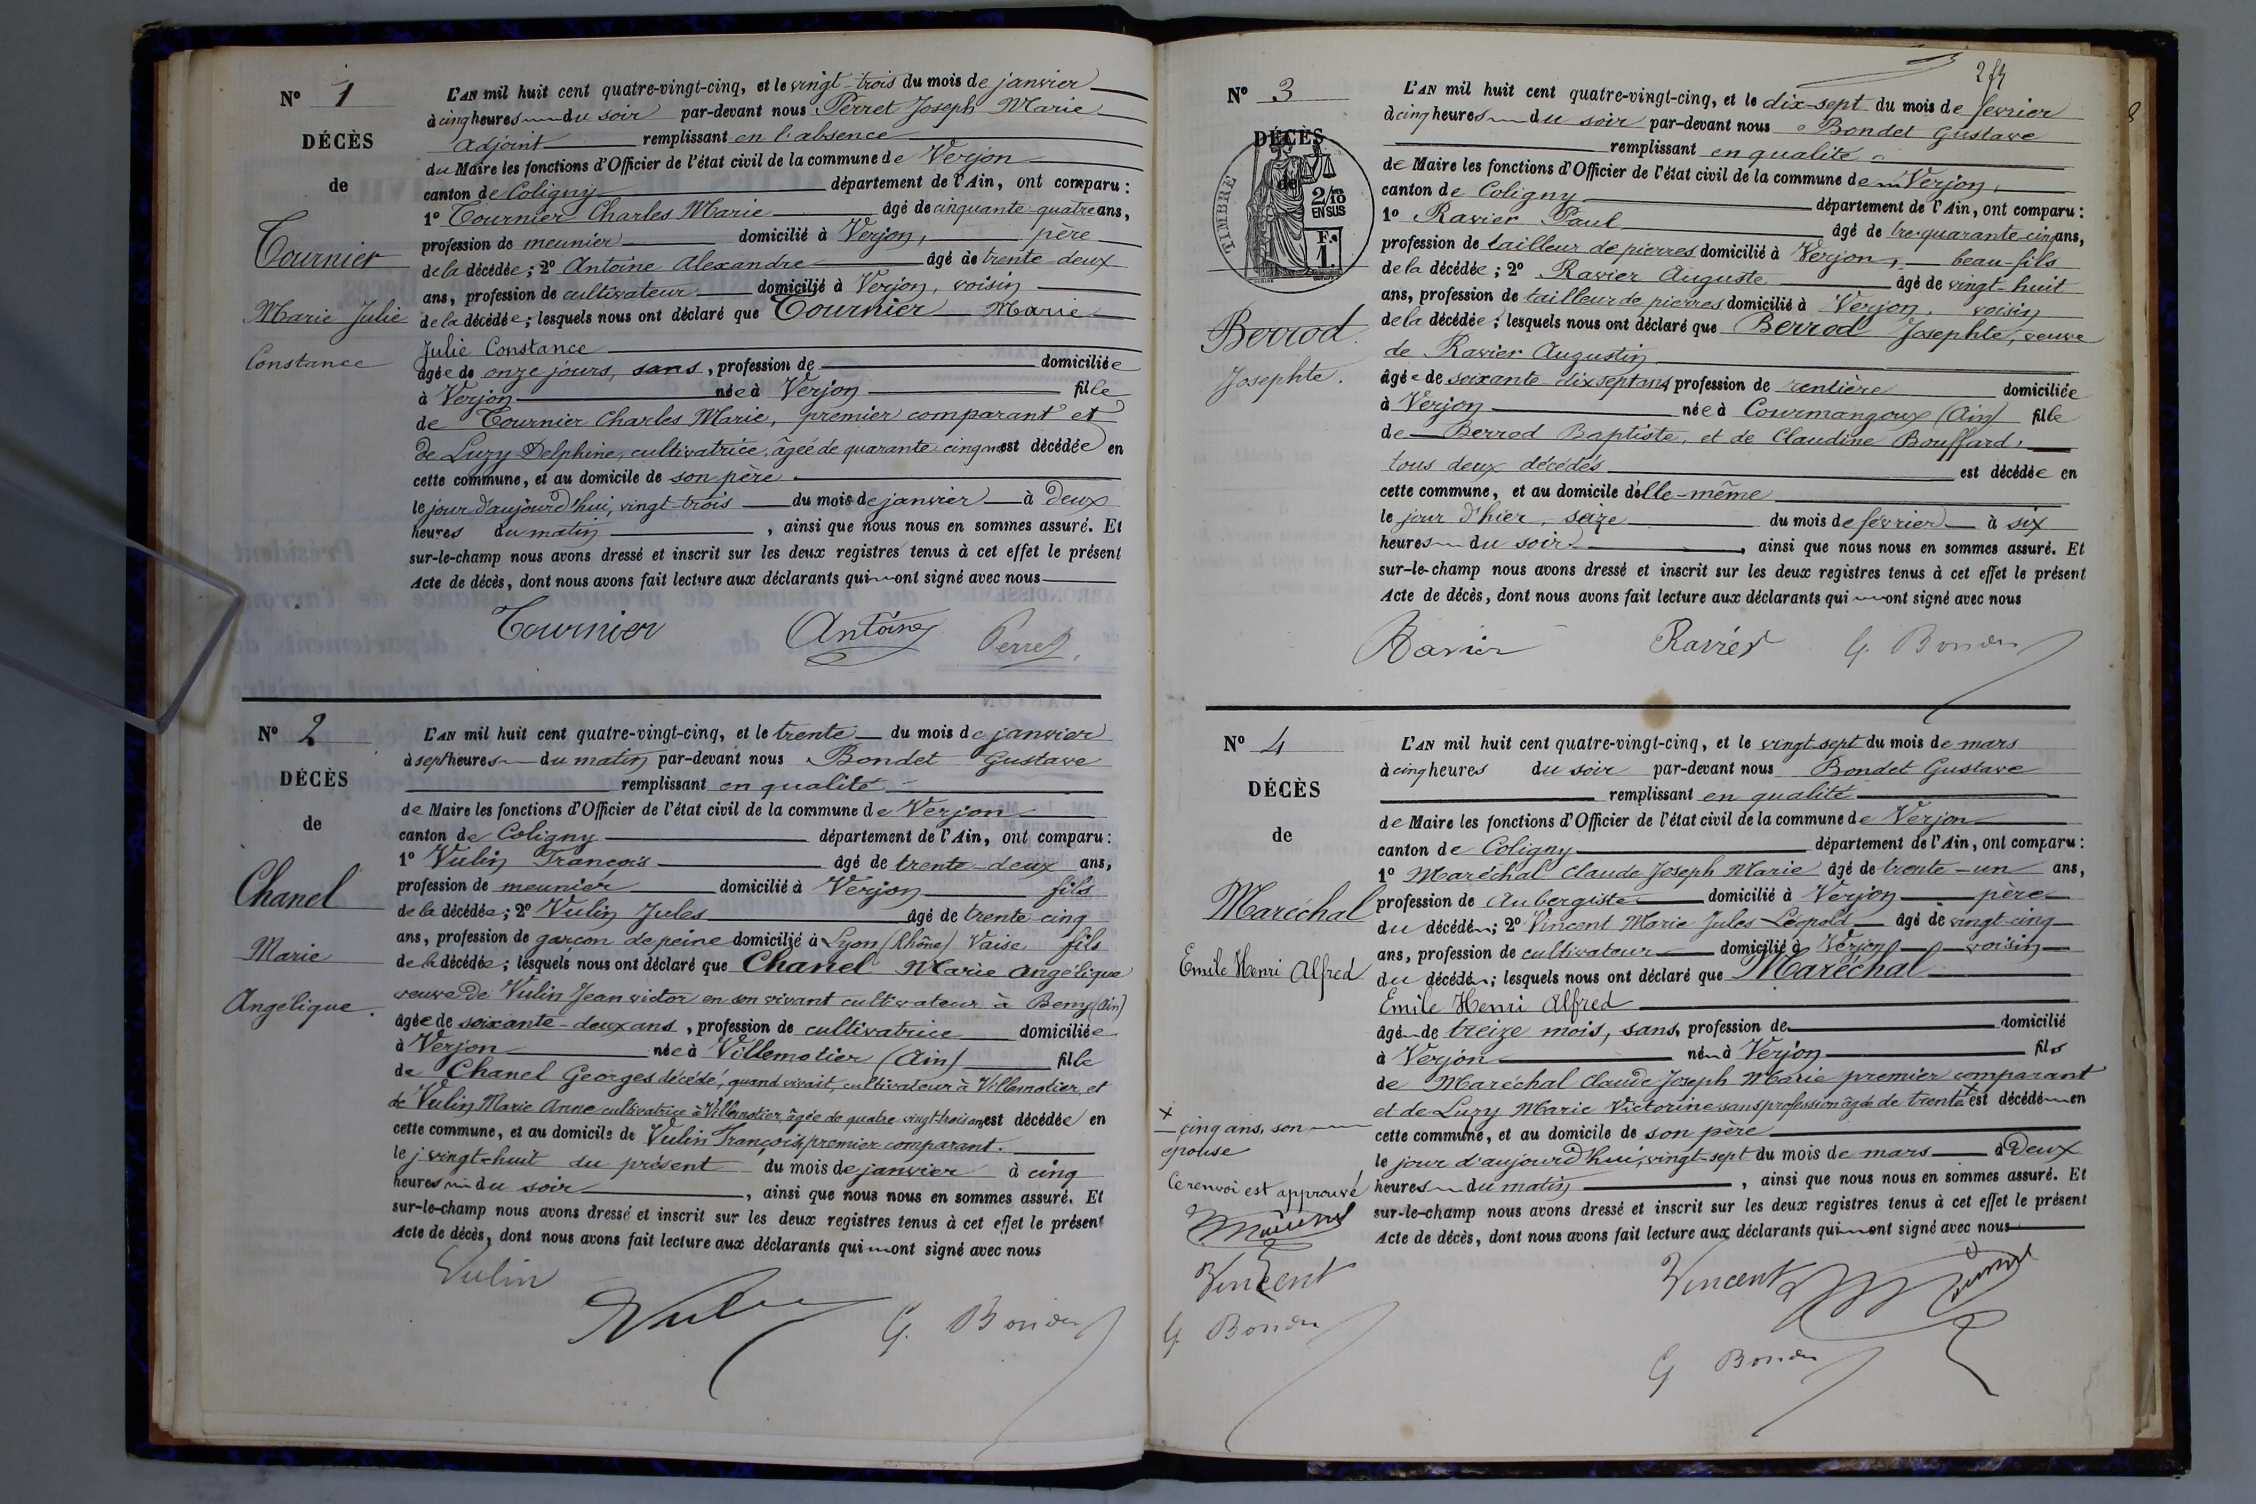 N° 1
DÉCÈS
de
Tournier
Marie Julie
Constance
L'AN mil huit cent quatre-vingt-cinq, et le vingt-trois du mois de janvier
à cinq heures du soir par-devant nous Perret Joseph Marie
adjoint remplissant en l'absence
du Maire les fonctions d'Officier de l'état civil de la commune de Verjon
canton de Coligny département de l'Ain, ont comparu :
1° Tournier Charles Marie âgé de cinquante-quatre ans,
profession de meunier domicilié à Verjon, père
de la décédée ; 2° Antoine Alexandre âgé de trente-deux
ans, profession de cultivateur domicilié à Verjon, voisin
de la décédée ; lesquels nous ont déclaré que Tournier Marie
Julie Constance
âgée de onze jours, sans, profession de domiciliée
à Verjon née à Verjon fille
de Tournier Charles Marie, premier comparant et
de Luzy Delphine, cultivatrice, âgée de quarante-cinq est décédée en
cette commune, et au domicile de son père
le jour d'aujourd'hui, vingt-trois du mois de janvier à deux
heures du matin, ainsi que nous nous en sommes assuré. Et
sur-le-champ nous avons dressé et inscrit sur les deux registres tenus à cet effet le présent
Acte de décès, dont nous avons fait lecture aux déclarants qui ont signé avec nous
Tournier Antoine Perret
N° 2
DÉCÈS
de
Chanel
Marie
Angélique.
L'AN mil huit cent quatre-vingt-cinq, et le trente du mois de janvier
à sept heures du matin par-devant nous Bondet Gustave
remplissant en qualité
de Maire les fonctions d'Officier de l'état civil de la commune de Verjon
canton de Coligny département de l'Ain, ont comparu :
1° Vulin François âgé de trente-deux ans,
profession de meunier domicilié à Verjon fils
de la décédée ; 2° Vulin Jules âgé de trente cinq
ans, profession de garçon de peine domicilié à Lyon (Rhône) Vaise fils
de la décédée ; lesquels nous ont déclaré que Chanel Marie Angélique
veuve de Vulin Jean victor en son vivant cultivateur à Beny (Ain)
âgée de soixante-deux ans, profession de cultivatrice domiciliée
à Verjon née à Villemotier (Ain) fille
de Chanel Georges décédé, quand vivait, cultivateur à Villemotier, et
de Vulin Marie Anne cultivatrice à Villemotier, âgée de quatre-vingt-trois ans est décédée en
cette commune, et au domicile de Vulin François, premier comparant.
le j vingt-huit du présent du mois de janvier à cinq
heures du soir, ainsi que nous nous en sommes assuré. Et
sur-le-champ nous avons dressé et inscrit sur les deux registres tenus à cet effet le présent
Acte de décès, dont nous avons fait lecture aux déclarants qui ont signé avec nous
Vulin Vulin G. Bondet
N° 3
DÉCÈS
de
TIMBRE
2/10
EN SUS
Berrod.
Josephte.
L'AN mil huit cent quatre-vingt-cinq, et le dix-sept du mois de fevrier
à cinq heures du soir par-devant nous Bondet Gustave
remplissant en qualité
de Maire les fonctions d'Officier de l'état civil de la commune de Verjon,
canton de Coligny département de l'Ain, ont comparu :
1° Ravier Paul âgé de quarante-cinq ans,
profession de tailleur de pierres domicilié à Verjon, beau-fils
de la décédée ; 2° Ravier Auguste âgé de vingt-huit
ans, profession de tailleur de pierres domicilié à Verjon, voisin
de la décédée ; lesquels nous ont déclaré que Berrod Josephte, veuve
de Ravier Augustin
âgée de soixante-dix sept ans, profession de rentière domiciliée
à Verjon née à Courmangoux (Ain) fille
de Berrod Baptiste, et de Claudine Bouffard,
tous deux décédés est décédée en
cette commune, et au domicile d'elle-même
le jour d'hier, seize du mois de février à six
heures du soir, ainsi que nous nous en sommes assuré. Et
sur-le-champ nous avons dressé et inscrit sur les deux registres tenus à cet effet le présent
Acte de décès, dont nous avons fait lecture aux déclarants qui ont signé avec nous
Ravier Ravier G. Bondet
N° 4
DÉCÈS
de
Maréchal
Emile Henri Alfred
L'AN mil huit cent quatre-vingt-cinq, et le vingt-sept du mois de mars
à cinq heures du soir par-devant nous Bondet Gustave
remplissant en qualité
de Maire les fonctions d'Officier de l'état civil de la commune de Verjon
canton de Coligny département de l'Ain, ont comparu :
1° Maréchal Claude Joseph Marie âgé de trente-un ans,
profession de Aubergiste domicilié à Verjon père
du décédé ; 2° Vincent Marie Jules Léopold âgé de vingt-cinq
ans, profession de cultivateur domicilié à Verjon voisin
du décédé ; lesquels nous ont déclaré que Maréchal
Emile Henri Alfred
âgé de treize mois, sans, profession de domicilié
à Verjon né à Verjon fils
de Maréchal Claude Joseph Marie premier comparant
et de Luzy Marie Victorine sans profession âgée de trente x est décédé en
cette commune, et au domicile de son père
le jour d'aujourd'hui, vingt-sept du mois de mars à Deux
heures du matin, ainsi que nous nous en sommes assuré. Et
sur-le-champ nous avons dressé et inscrit sur les deux registres tenus à cet effet le présent
Acte de décès, dont nous avons fait lecture aux déclarants qui ont signé avec nous
x cinq ans, son
épouse
Ce renvoi est approuvé
Vincent
G. Bondet
Vincent
G Bondet